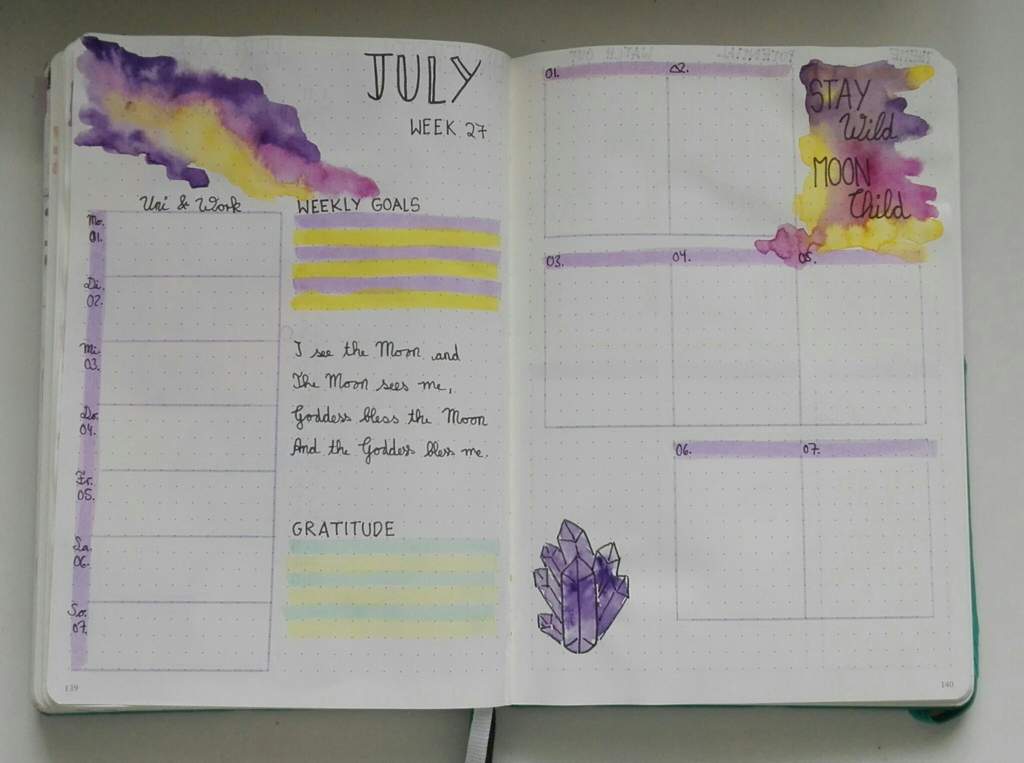 JULY
WEEK 27
Uni & Work
Mo.
01.
Di.
02.
Mi.
03.
Do.
04.
Fr.
05.
Sa.
06.
So.
07.
WEEKLY GOALS
I see the Moon and
The Moon sees me,
Goddess bless the Moon
And the Goddess bless me.
GRATITUDE
139
01.
02.
STAY
Wild
MOON
Child
03.
04.
05.
06.
07.
140